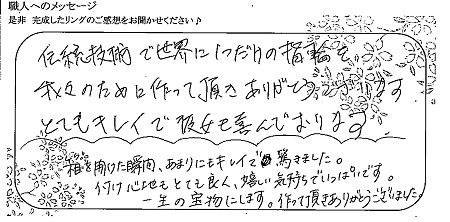 職人へのメッセージ
是非 完成したリングのご感想をお聞かせください♪
伝統技術で世界に1つだけの指輪を、
私たちのために作って頂きありがとうございます
とてもキレイで彼女も喜んでおります。
箱を開けた瞬間、あまりにもキレイで驚きました。
付け心地もとても良く、嬉しい気持ちでいっぱいです。
一生の宝物にします。作って頂きありがとうございました